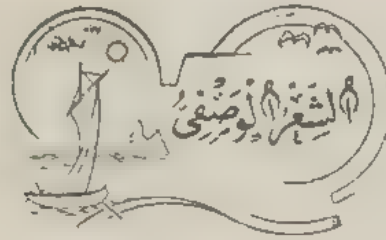 الشِّعْرُ الْوَصْفِيُّ